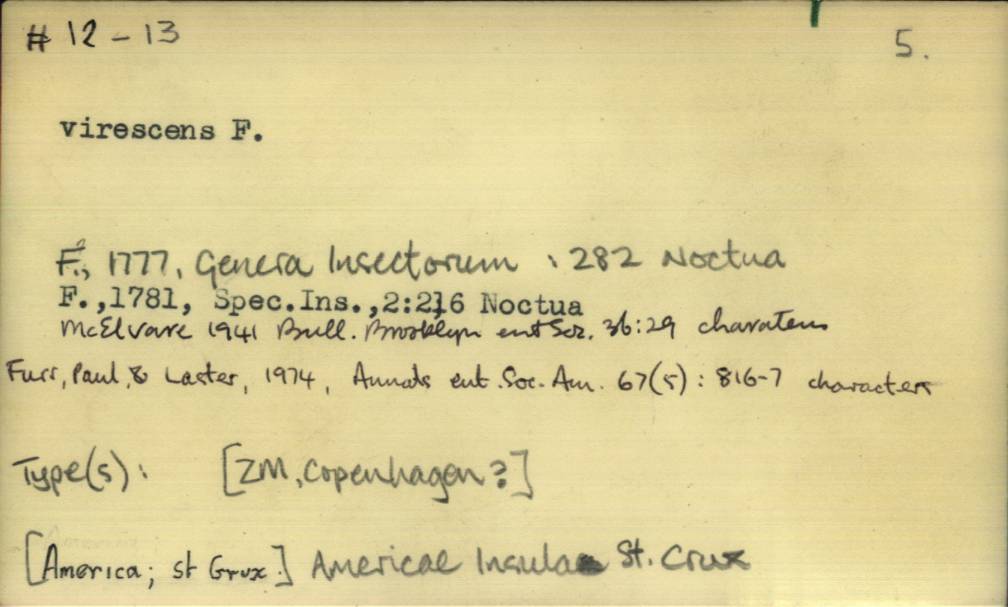 # 12-13 5.
virescens F.
F., 1777, Genera Insectorum : 282 Noctua
F.,1781, Spec.Ins.,2:216 Noctua
McElvare 1941 Bull. Brooklyn ent Soc. 36:29 characters
Furr, Paul, & Laster, 1974, Annals ent. Soc. Am. 67(5): 816-7 characters
Type(s): [ZM, Copenhagen?]
[America; St Crux.] Americae Insulae St. Crux